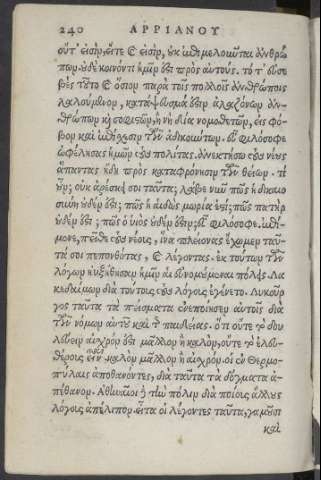 240 ΑΡΡΙΑΝΟΥ
οὔτ' εἰσὶν, εἴτε καὶ εἰσὶν, οὐκ ἐπιμελοῦνται ἀνθρώ
πων. οὐδὲ κοινόν τι ἡμῖν ἐστι πρὸς αὐτούς. τό τ' εὐσε
βὲς τοῦτο καὶ ὅσιον παρὰ τοῖς πολλοῖς ἀνθρώποις
λαλούμενον, καταψευσμά ἐστιν ἀλαζόνων ἀν-
θρώπων καὶ σοφιστῶν, ἢ νὴ δία νομοθετῶν, εἰς φό-
βον καὶ ἐπίσχεσιν τῶν ἀδικούντων. εὖ φιλόσοφε
ὠφέλησας ἡμῶν τοὺς πολίτας. ἀνεκτήσω τοὺς νέους
ἅπαντας ἤδη πρὸς καταφρόνησιν τῶν θείων. τί
οὖν; οὐκ ἀρέσκει σοι ταῦτα; λάβε νῦν πῶς ἡ δικαιο
σύνη οὐδέν ἐστι; πῶς ἡ αἰδὼς μωρία ἐστί; πῶς πατὴρ
οὐδέν ἐστι; πῶς ὁ υἱὸς οὐδέν ἐστιν; εὖ φιλόσοφε. ἐπί-
μενε, πεῖθε τοὺς νέους, ἵνα πλείονας ἔχωμεν ταυ-
τά σοι πεπονθότας, καὶ λέγοντας. ἐκ τούτων τῶν
λόγων ηὐξήθησαν ἡμῖν αἱ εὐνομούμεναι πόλεις. Λα
κεδαίμων διὰ τούτους τοὺς λόγους ἐγένετο. Λυκοῦρ
γος ταῦτα τὰ πείσματα ἐνεποίησεν αὐτοῖς διὰ
τῶν νόμων αὐτοῦ καὶ τῆς παιδείας. ὅτι οὔτε τὸ δου
λεύειν αἰσχρόν ἐστι μᾶλλον ἢ καλὸν, οὔτε τὸ ἐλευ-
θέρους εἶναι καλὸν μᾶλλον ἢ αἰσχρόν. οἱ ἐν Θερμο-
πύλαις ἀποθανόντες, διὰ ταῦτα τὰ δόγματα ἀ-
πέθανον. Ἀθηναῖοι δὲ τὴν πόλιν διὰ ποίους ἄλλους
λόγους ἀπέλιπον. εἶτα οἱ λέγοντες ταῦτα, γαμοῦσι
καὶ